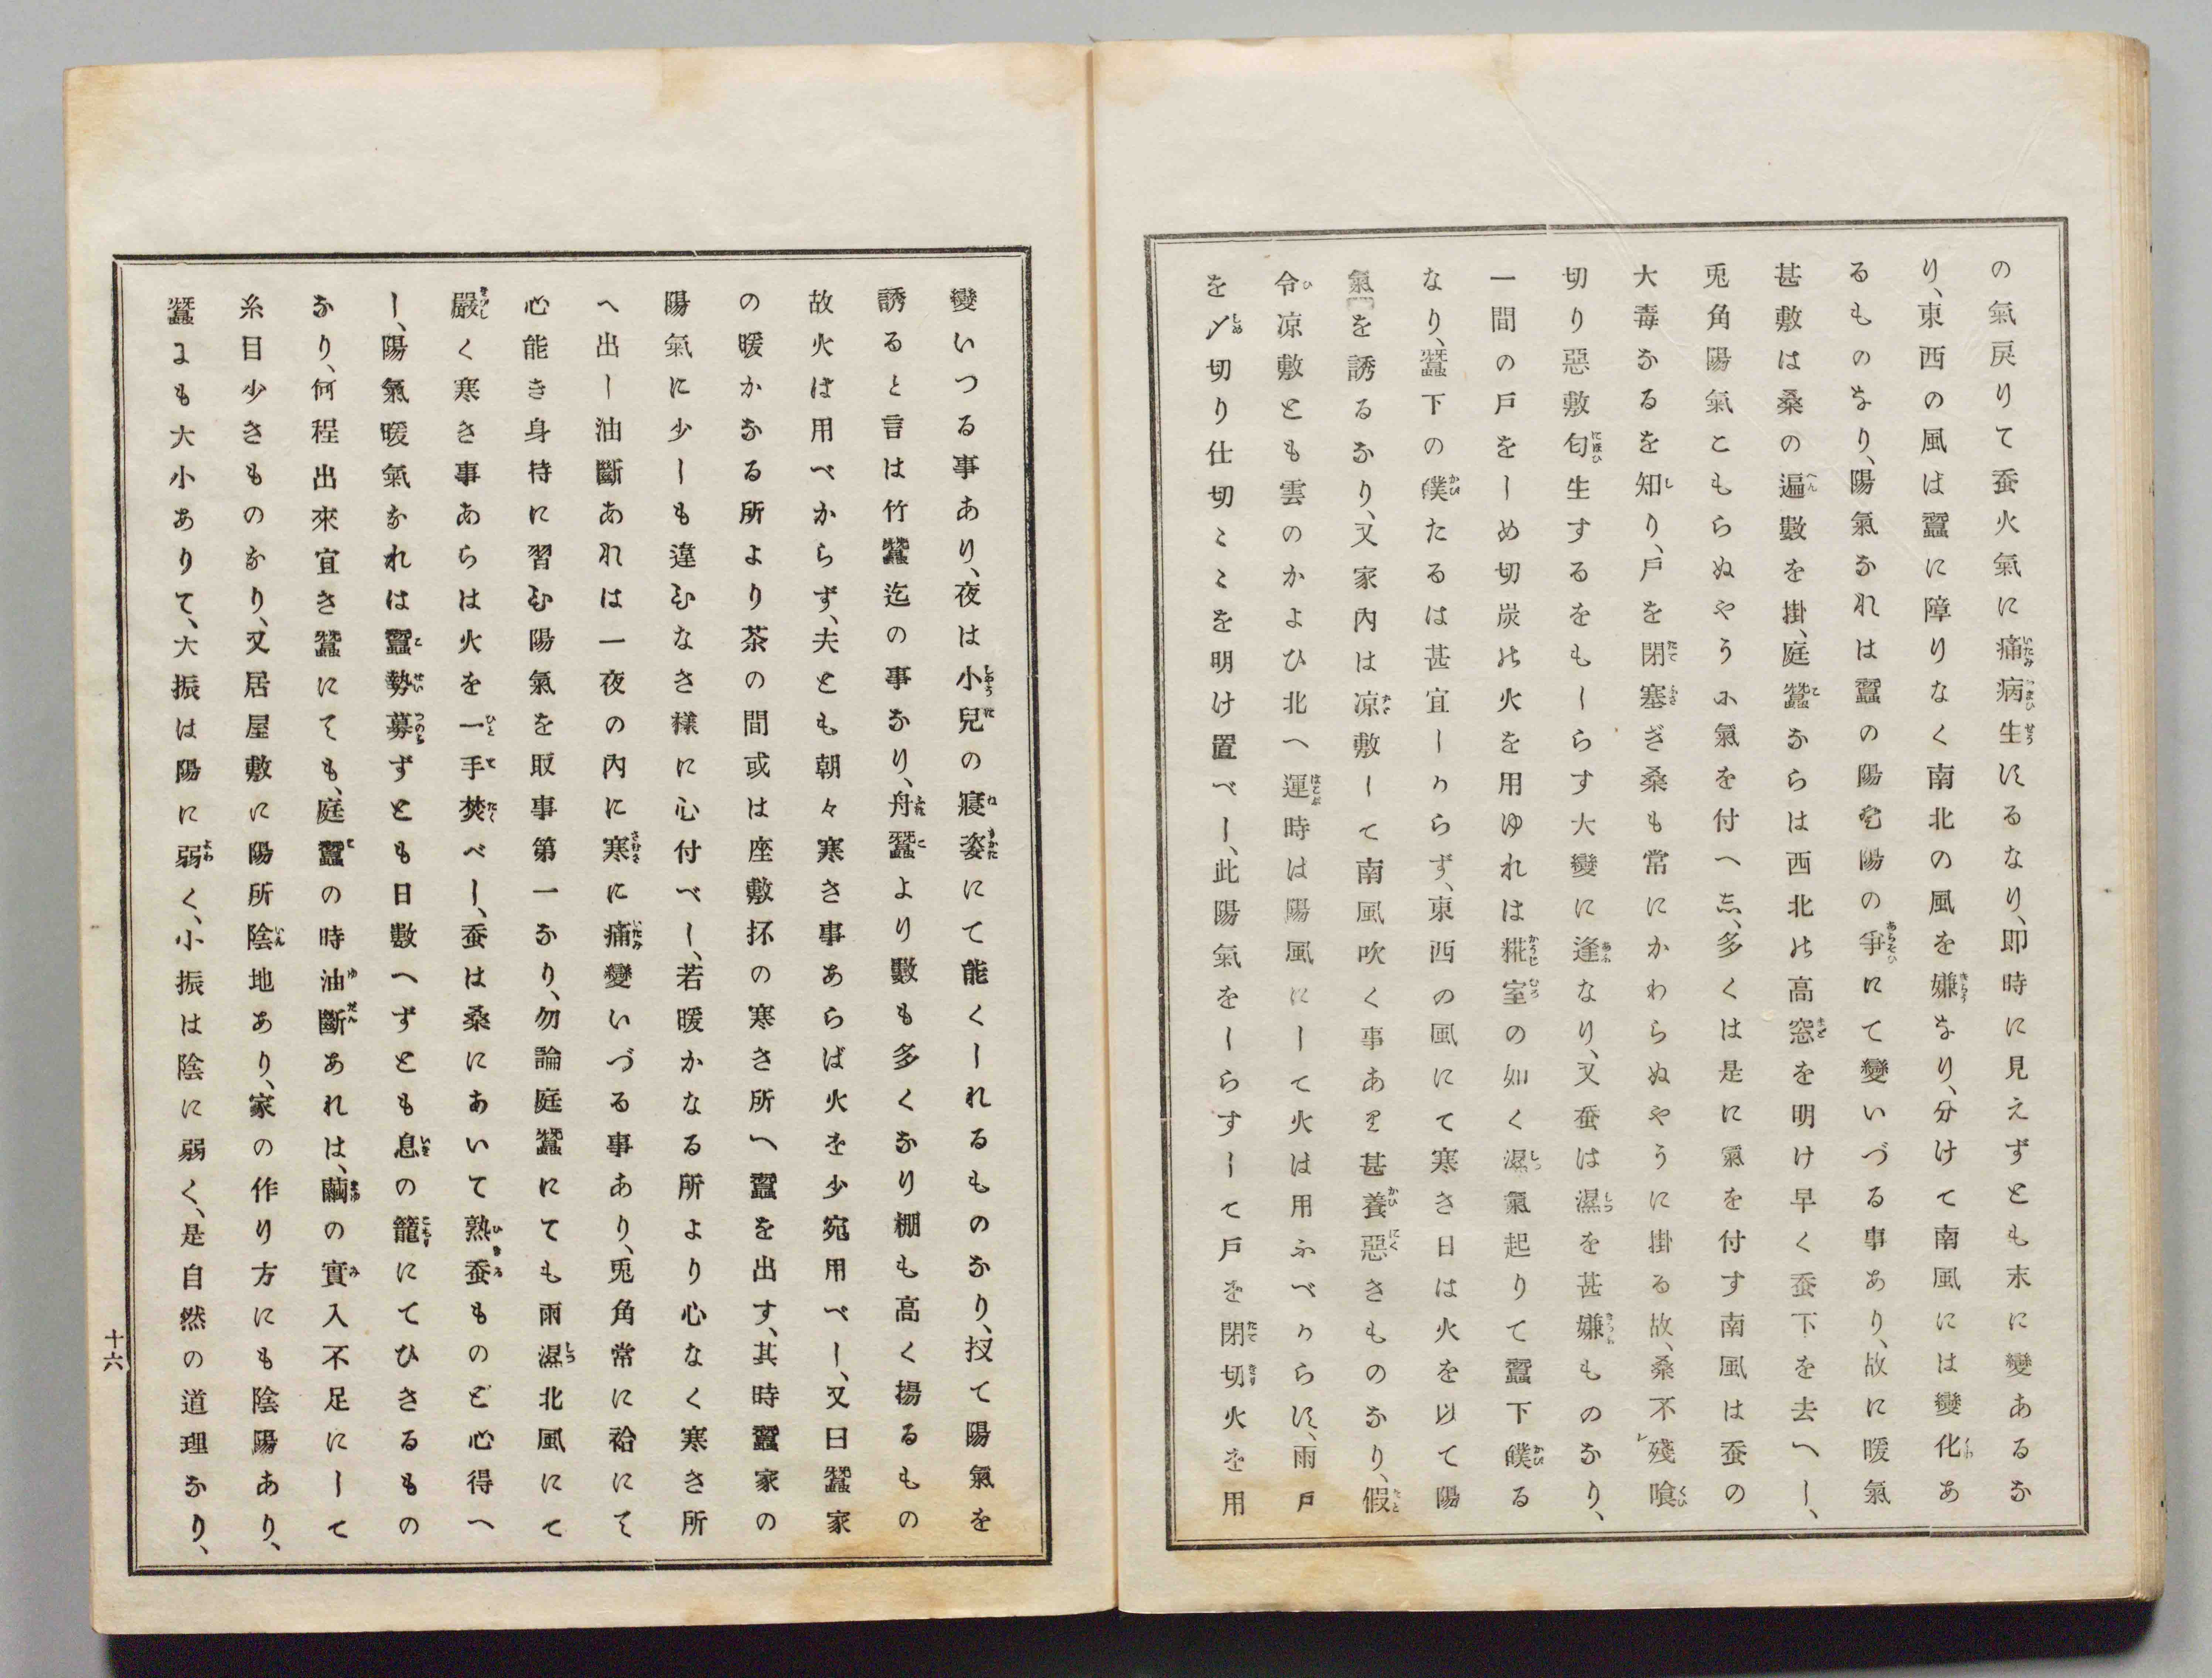 の氣戻りて蚕火氣に痛病生ずるなり、即時に見えずとも末に變あるな
り、東西の風は蠶に障りなく南北の風を嫌なり、分けて南風には變化あ
るものなり、陽氣なれは蠶の陽と陽の爭にて變いづる事あり、故に暖氣
甚敷は桑の遍數を掛、庭蠶ならは西北の高窓を明け早く蚕下を去へし、
兎角陽氣こもらぬやうに氣を付へし、多くは是に氣を付す南風は蚕の
大毒なるを知り、戸を閉塞ぎ桑も常にかわらぬやうに掛る故、桑不殘喰
切り惡敷匂生するをもしらす大變に逢なり、又蚕は濕を甚嫌ものなり、
一間の戸をしめ切炭の火を用ゆれは糀室の如く濕氣起りて蠶下㒒る
なり、蠶下の㒒たるは甚宜しからず、東西の風にて寒き日は火を以て陽
氣を誘るなり、又家内は凉敷して南風吹く事あり甚養惡きものなり、假
令凉敷とも雲のかよひ北へ運時は陽風にして火は用ふべからず、雨戸
を〆切り仕切こゝを明け置べし、此陽氣をしらすして戸を閉切火を用
變いつる事あり、夜は小兒の寢姿にて能くしれるものなり、扨て陽氣を
誘ると言は竹蠶迄の事なり、舟蠶より數も多くなり棚も高く揚るもの
故火は用べからず、夫とも朝々寒き事あらば火を少宛用べし、又曰蠶家
の暖かなる所より茶の間或は座敷抔の寒き所へ蠶を出す、其時蠶家の
陽氣に少しも違むなき樣に心付べし、若暖かなる所より心なく寒き所
へ出し油斷あれは一夜の内に寒に痛變いづる事あり、兎角常に袷にて
心能き身持に習む陽氣を取事第一なり、勿論庭蠶にても雨濕北風にて
嚴く寒き事あらは火を一手焚べし、蚕は桑にあいて熟蚕ものと心得へ
し、陽氣暖氣なれは蠶勢募ずとも日數へずとも息の籠にてひきるもの
なり、何程出來宜き蠶にても、庭蠶の時油斷あれは、繭の實入不足にして
糸目少きものなり、又居屋敷に陽所陰地あり、家の作り方にも陰陽あり、
蠶にも大小ありて、大振は陽に弱く、小振は陰に弱く、是自然の道理なり、
十六